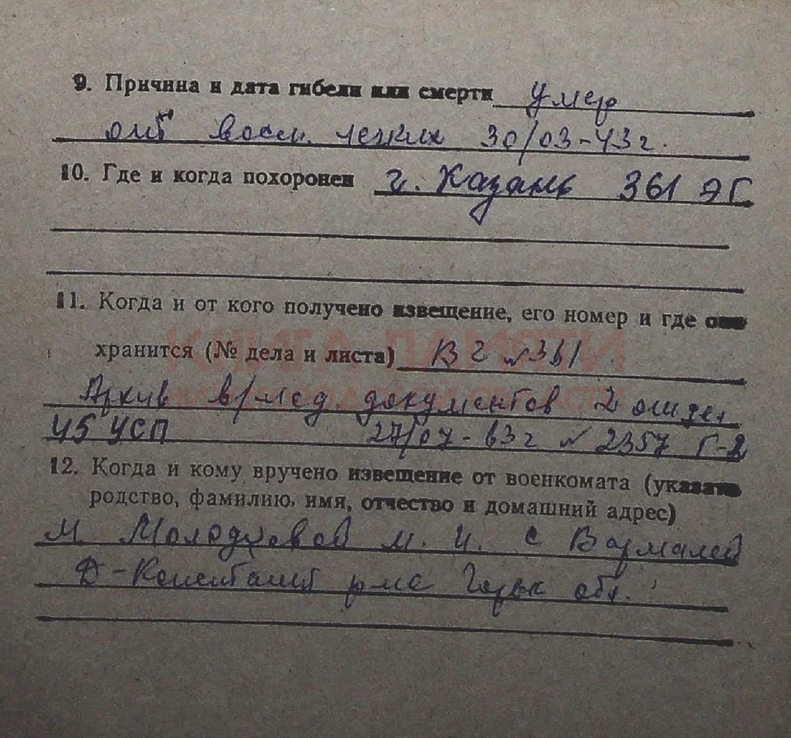 9. Причина и дата гибели или смерти умер
от восп. легких 30/03-43г.
10. Где и когда похоронен г. Казань 361 ЭГ
11. Когда и от кого получено извещение, его номер и где оно
хранится (№ дела и листа) В г №361
КНИГА ПАМЯТИ
Архив в/мед. документов 2 отдел
45 УСП 27/07-63г № 2357 Г-2
12. Когда и кому вручено извещение от военкомата (указать
родство, фамилию, имя, отчество и домашний адрес)
М М. И. с Вармалей
Д-Константин р-на Горьк обл.